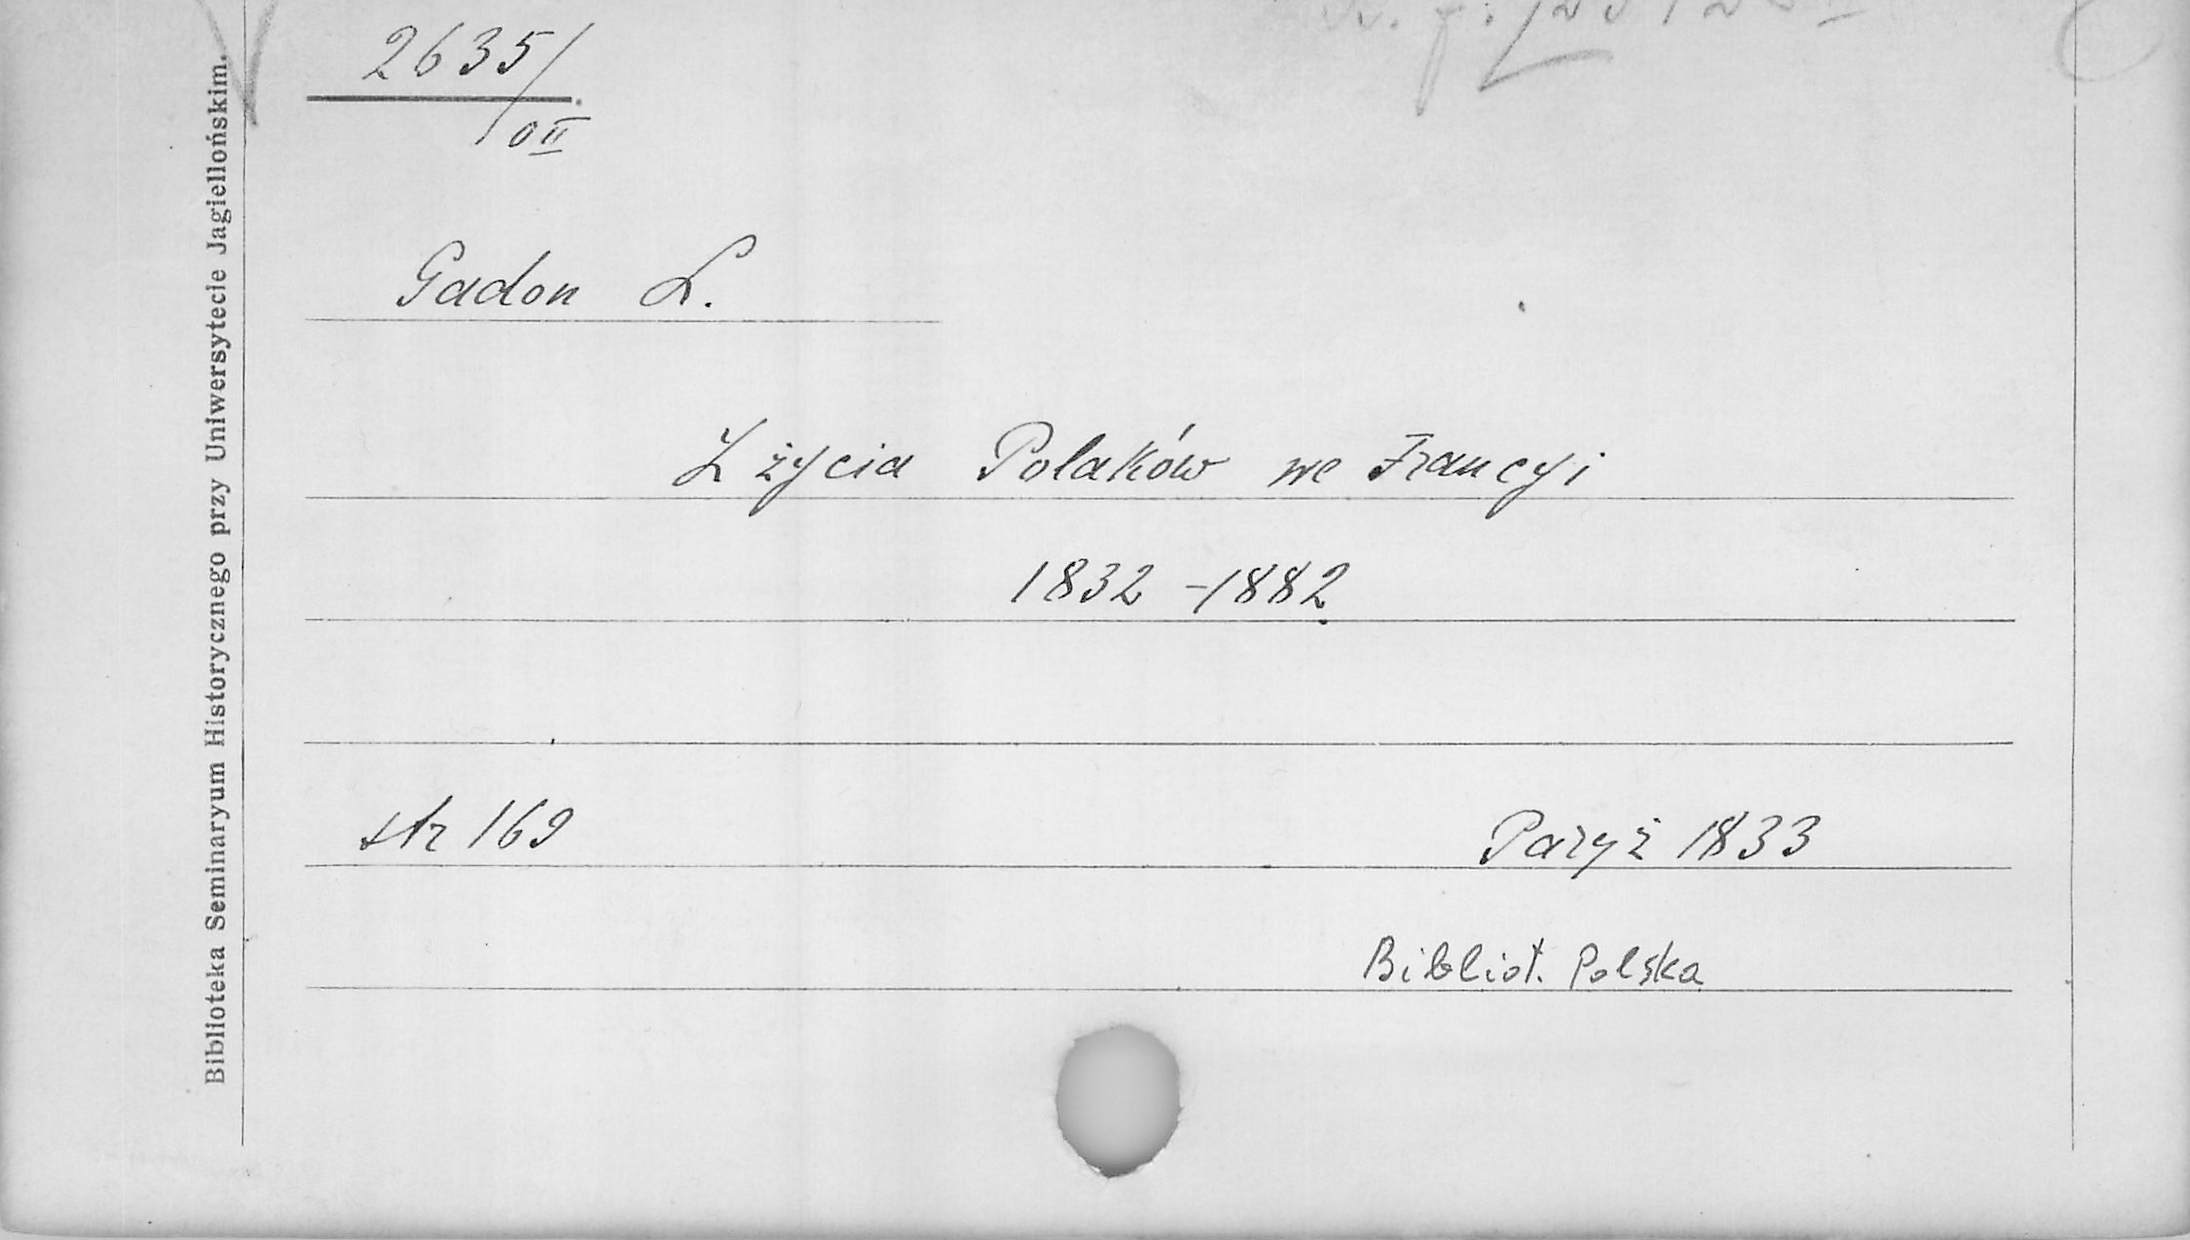 2635/
0II
Gadon L.
Z życia Polaków we Francyi
1832 - 1882
str 169
Paryż 1833
Bibliot. Polska
Biblioteka Seminaryum Historycznego przy Uniwersytecie Jagiellońskim.